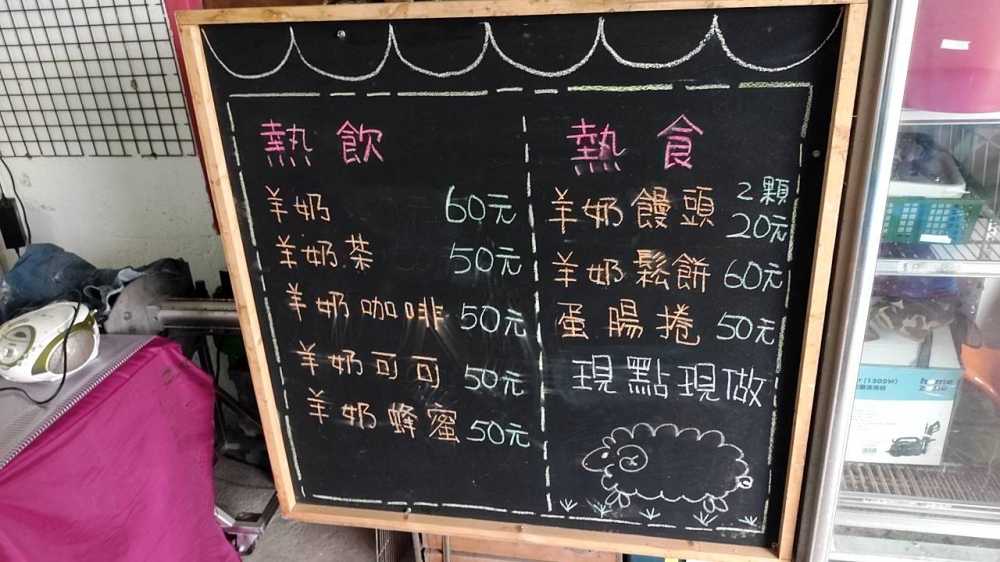 熱飲
羊奶 60元
羊奶茶 50元
羊奶咖啡 50元
羊奶可可 50元
羊奶蜂蜜 50元
熱食
羊奶饅頭 2顆 20元
羊奶鬆餅 60元
蛋腸捲 50元
現點現做
(1300W)
home